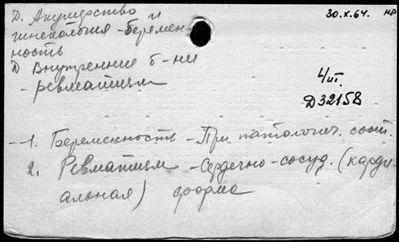 Д. Акушерство и
гинекология - беремен-
ность
Д Внутренние б-ни
- ревматизм
30.X.64. кр
4/III
Д32158
- 1. Беременность - При патологич. сост.
2. Ревматизм - Сердечно-сосуд. (карди-
альная) форма